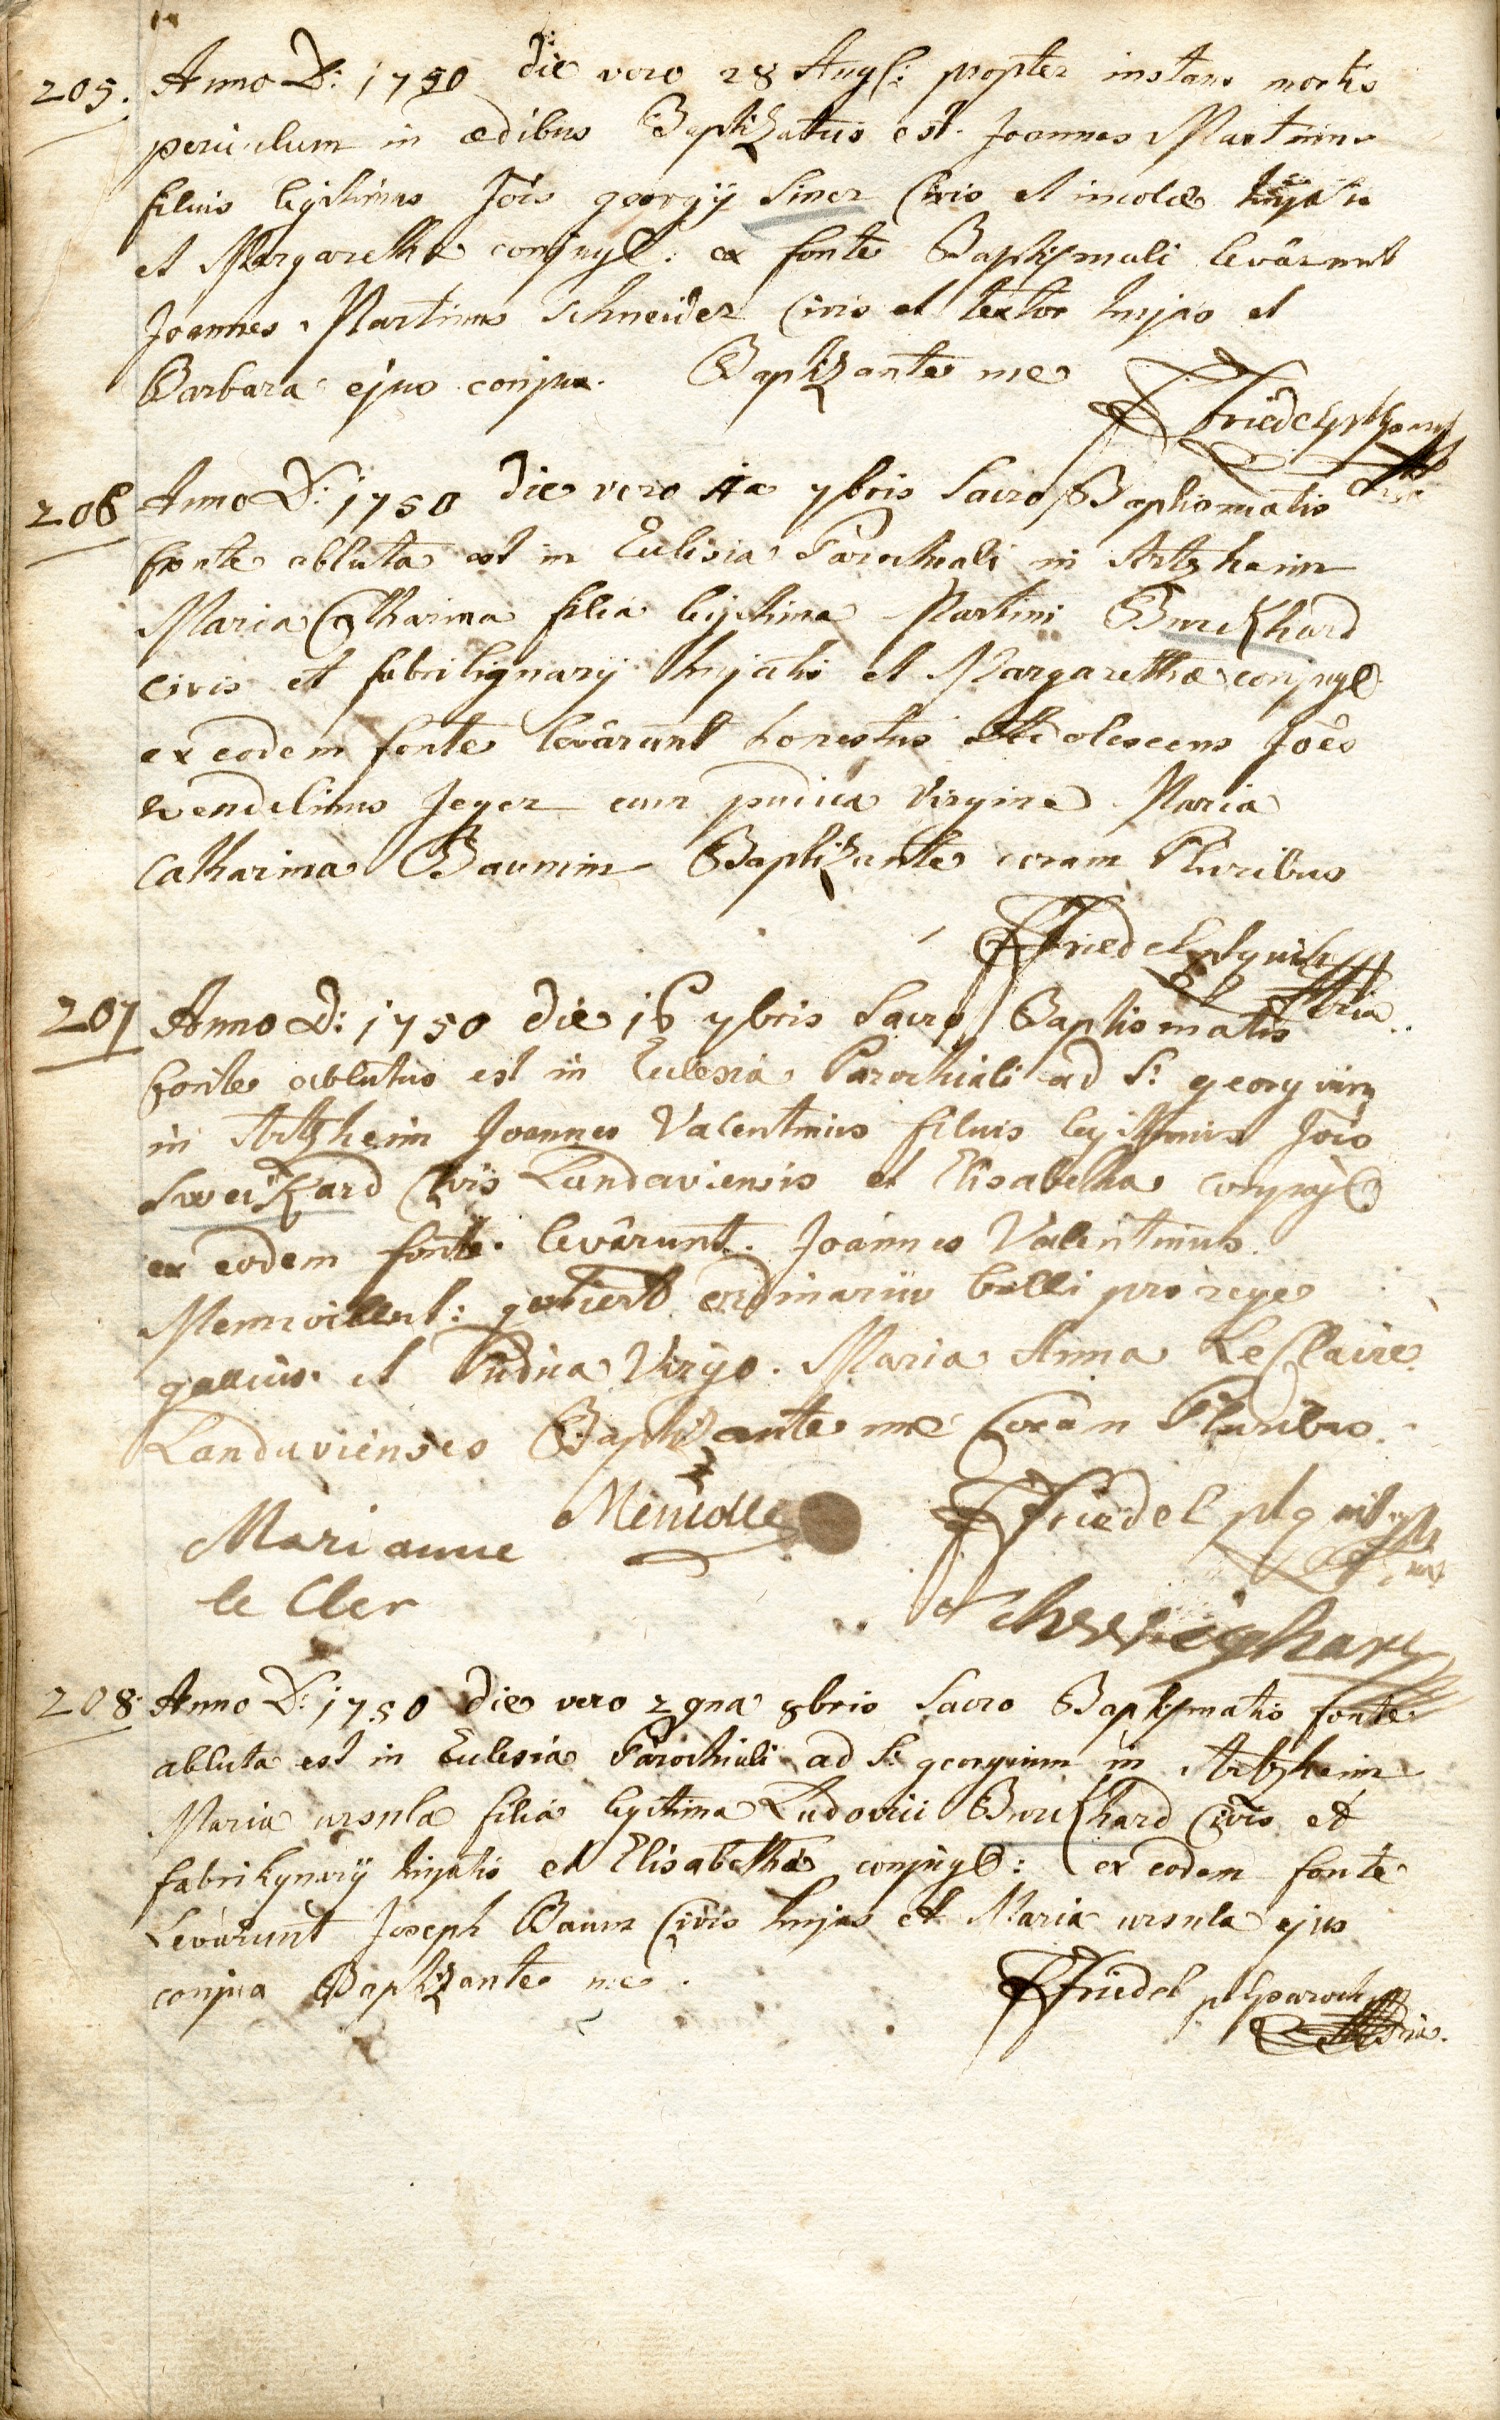 205. Anno D: 1750 die vero 28 Aug: propter instans mortis
periculum in ædibus Baptizatus est Joannes Martinus
filius legitimus Jois georgÿ Siner Civis et incolæ hujatis
et Margaretha conjug: ex fonte Baptismali levârunt
Joannes Martinus Schneider Civis et textor hujas et
Barbara ejus conjux. Baptizante me
Friedel
206 Anno D: 1750 die vero 7bris Sacro Baptismatis
fonte abluta est in Eclesia Parochiali in Artzheim
Maria Catharina filia legitima Martini Burckhard
civis et fabri lignarÿ hujatis et Margarethæ conjug
ex eodem fonte levârunt honestus Adolescens Joês
wendelinus Jeger cum pudica virgine Maria
Catharina Baumin Baptizante coram Pluribus
Friedel
207 Anno D: 1750 die 16 7bris Sacro Baptismatis
fonte ablutus est in Eclesia Parochiali ad S: georgium
in Artzheim Joannes Valentinus filius legitimus Jois
Sweickard Civis Landaviensis et Elisabetha conjug
ex eodem fonte levârunt. Joannes Valentinus
ordinarius belli pro rege
gallico et Pudica Virgo. Maria Anna Le Claire
Landavienses Baptizante me Coram Pluribus.
Marianne
le Cler
Friedel
208: Anno D: 1750 die vero 2 8bris Sacro Baptismatis fonte
abluta est in Eclesia Parochiali ad S: georgium in Artzheim
Maria ursula filia legitima Ludovici Burckhard Civis et
fabri lignarÿ hujatis et Elisabetha conjug: ex eodem fonte
Levârunt Joseph Baum Civis hujas et Maria ursula ejus
conjux Baptizante me.
Friedel